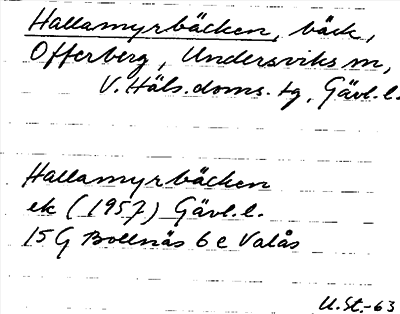 Hallamyrbäcken, bäck,
Offerberg, Undersviks sn,
V. Häls. doms. tg, Gävl. l.
Hallamyrbäcken
ek (1957) Gävl. l.
15 G Bollnäs 6 e Valås
U. St. -63